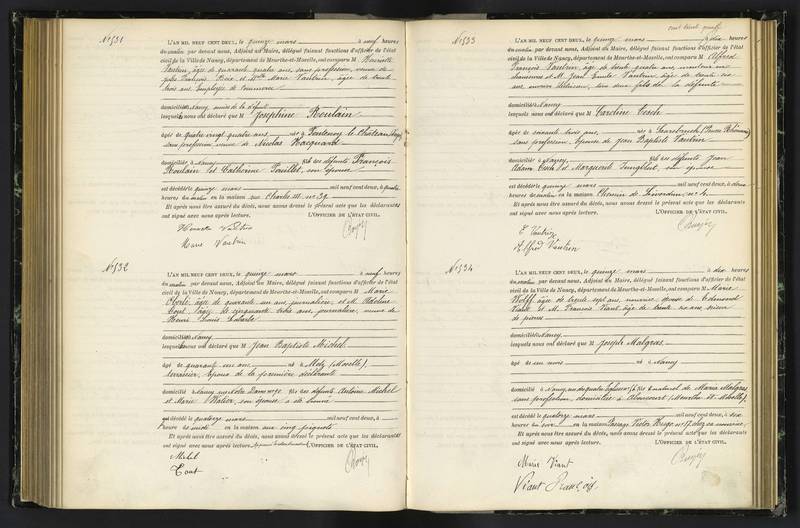 N° 531
L'AN MIL NEUF CENT DEUX, le quinze mars à neuf heures
du matin par devant nous, Adjoint au Maire, délégué faisant fonctions d'officier de l'état
civil de la Ville de Nancy, département de Meurthe-et-Moselle, ont comparu M Henriette
Vautrin, âgée de quarante quatre ans, sans profession, veuve de
Jules François et Marie Vautrin, âgée de trente
trois ans, employée de commerce
domiciliés à Nancy, amies de la défunte
lesquels nous ont déclaré que M Joséphine Roulain
âgée de quatre vingt quatre ans née à Fontenoy le Château
sans profession, veuve de Nicolas Hacquard
domiciliée à Nancy fille des défunts François
Roulain et Catherine Pouillet, son épouse
est décédée le quinze mars mil neuf cent deux, à quatre
heures du matin en la maison rue Charles III n° 39
Et après nous être assuré du décès, nous avons dressé le présent acte que les déclarants
ont signé avec nous après lecture. L'OFFICIER DE L'ÉTAT CIVIL,
Marie Vautrin
N° 532
L'AN MIL NEUF CENT DEUX, le quinze mars à neuf heures
du matin par devant nous, Adjoint au Maire, délégué faisant fonctions d'officier de l'état
civil de la Ville de Nancy, département de Meurthe-et-Moselle, ont comparu M Marie
âgée de quarante un ans, journalière, et M Adeline
Cont, âgée de cinquante trois ans, journalière, veuve de
Henri Louis
domiciliés à Nancy
lesquels nous ont déclaré que M Jean Baptiste Michel
âgé de quarante ans né à Metz (Moselle),
terrassier, époux de la première déclarante
domicilié à Nancy fils des défunts Antoine Michel
et Marie Watier, son épouse
est décédé le quatorze mars mil neuf cent deux, à
heures en la maison rue cinq piquets
Et après nous être assuré du décès, nous avons dressé le présent acte que les déclarants
ont signé avec nous après lecture. L'OFFICIER DE L'ÉTAT CIVIL,
Michel
Cont
N° 533
L'AN MIL NEUF CENT DEUX, le quinze mars à dix heures
du matin par devant nous, Adjoint au Maire, délégué faisant fonctions d'officier de l'état
civil de la Ville de Nancy, département de Meurthe-et-Moselle, ont comparu M Alfred
François Vautrin, âgé de trente quatre ans,
et M. Jean Emile Vautrin, âgé de trente six
ans, ouvrier tous deux fils de la défunte
domiciliés à Nancy
lesquels nous ont déclaré que M Caroline Cesch
âgée de soixante trois ans, née à Saarbruck (Prusse Rhénane)
sans profession, épouse de Jean Baptiste Vautrin
domiciliée à Nancy, fille des défunts Jean
Adam Cesch et Marguerite Jungblut, son épouse
est décédée le quinze mars mil neuf cent deux, à deux
heures du matin en la maison Chemin de
Et après nous être assuré du décès, nous avons dressé le présent acte que les déclarants
ont signé avec nous après lecture. L'OFFICIER DE L'ÉTAT CIVIL,
E. Vautrin
Alfred Vautrin
N° 534
L'AN MIL NEUF CENT DEUX, le quinze mars à dix heures
du matin par devant nous, Adjoint au Maire, délégué faisant fonctions d'officier de l'état
civil de la Ville de Nancy, département de Meurthe-et-Moselle, ont comparu M Marie
Wolff, âgée de trente sept ans, nourrice, épouse de Edmond
Viant et M. François Viant, âgé de trente ans, scieur
de pierres
domiciliés à Nancy
lesquels nous ont déclaré que M Joseph Malgras
âgé de un mois né à Nancy
domicilié à Nancy, fils naturel de Maria Malgras
sans profession, domiciliée à (Meurthe et Moselle),
est décédé le quatorze mars mil neuf cent deux, à dix
heures du soir en la maison Passage Victor Hugo n° 17, chez sa nourrice,
Et après nous être assuré du décès, nous avons dressé le présent acte que les déclarants
ont signé avec nous après lecture. L'OFFICIER DE L'ÉTAT CIVIL,
Marie Viant
Viant François